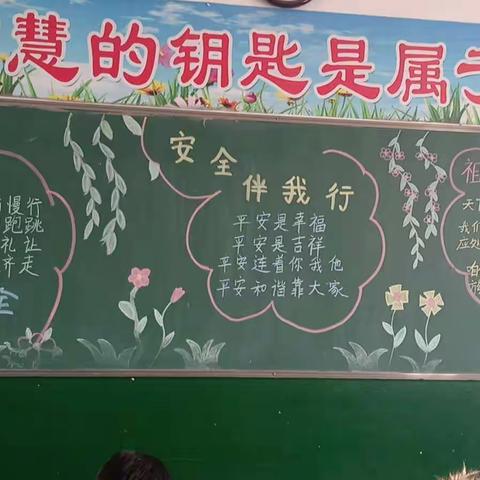 慧的钥匙是属于
安全
伴我行
平安是幸福
平安是吉祥
平安连着你我他
平安和谐靠大家
慢行
跑跳
礼让
齐走
全
祖
天下
我们
应处